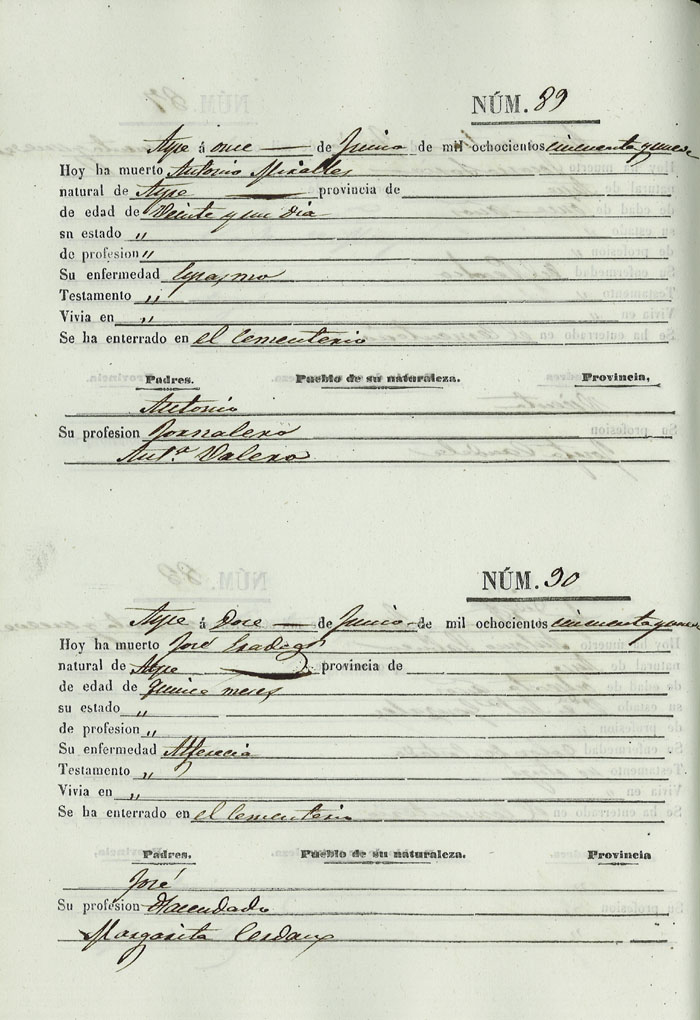 NÚM. 89
Aspe á once de Junio de mil ochocientos cincuenta y nueve
Hoy ha muerto Antonio Miralles
natural de Aspe provincia de
de edad de Veinte y un dia
sn estado „
de profesion „
Su enfermedad Espasmo
Testamento „
Vivia en „
Se ha enterrado en el Cementerio
Padres. Pueblo de su naturaleza. Provincia,
Antonio
Su profesion Jornalero
Antª Valero
NÚM. 90
Aspe á Doce de Junio de mil ochocientos cincuenta y nueve
Hoy ha muerto José
natural de Aspe provincia de
de edad de Quince meses
su estado „
de profesion „
Su enfermedad Alferecia
Testamento „
Vivia en „
Se ha enterrado en el Cementerio
Padres. Pueblo de su naturaleza. Provincia
José
Su profesion Hacendado
Margarita Cerdan